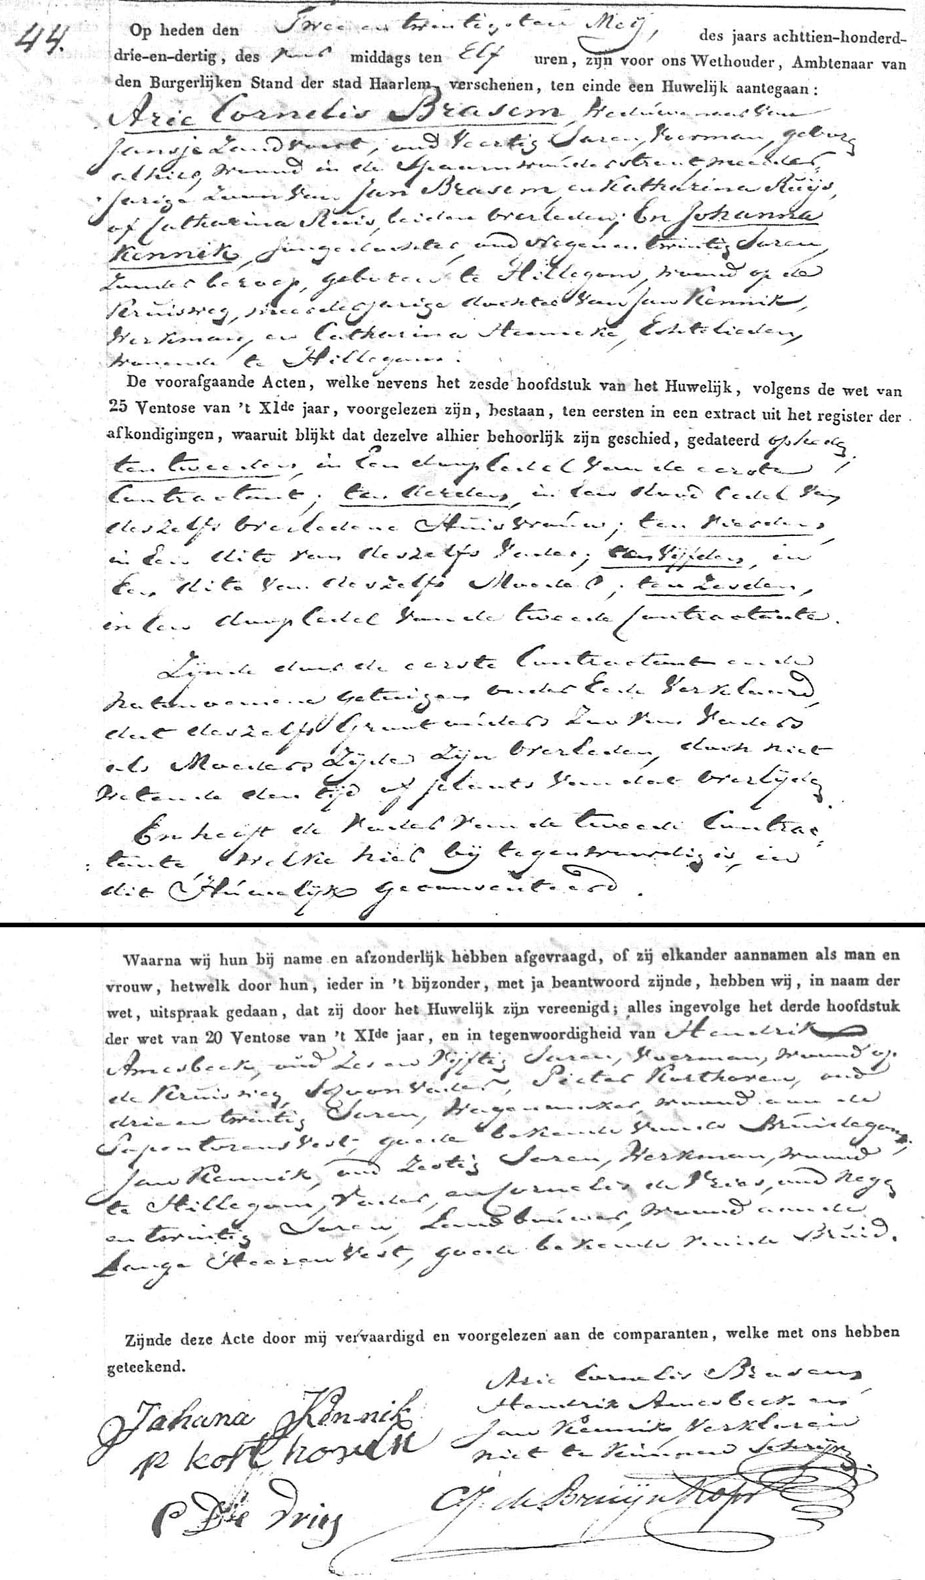 44.
Op heden den Twee en twintigsten Meij, des jaars achttien-honderd-
drie-en-dertig, des voor middags ten Elf uren, zijn voor ons Wethouder, Ambtenaar van
den Burgerlijken Stand der stad Haarlem, verschenen, ten einde een Huwelijk aantegaan:
Arie Cornelis Brasem, Weduwenaar van
Jansje Zandvoort, oud Veertig Jaren, Voerman, geborg
alhier, woond in de Spaarnwouderstraat, meerder
jarige Zoon van Jan Brasem, en Katharina Ruijs,
of Catharina Ruis, beiden overleden; En Johanna
Kennik, jongedochter, oud Negen en twintig Jaren,
Zonder beroep, geboren te Hillegom, woond op de
Kruisweg, meerderjarige dochter van Jan Kennik,
Werkman, en Catharina Henneke, Echtelieden,
wonende te Hillegom.
De voorafgaande Acten, welke nevens het zesde hoofdstuk van het Huwelijk, volgens de wet van
25 Ventose van 't XIde jaar, voorgelezen zijn, bestaan, ten eersten in een extract uit het register der
afkondigingen, waaruit blijkt dat dezelve alhier behoorlijk zijn geschied, gedateerd op hedg;
ten tweeden, in Een doopcedel van de eerste
Contractant; ten derden, in een dood cedel van
deszelfs overledene Huisvrouw; ten vierden,
in Een dito van deszelfs Vader; ten Vijfden, in
Een dito van deszelfs Moeder; ten Zesden,
in een doopcedel van de tweede Contractante.
Zijnde door de eerste Contractant en de
natenoemene getuigen onder Eede Verklaard,
dat deszelfs Grootouders Zoo van Vaders
als Moeders Zijde Zijn overleden, doch niet
wetende den tijd of plaats van dat overlijdg.
En heeft de Vader van de tweede Contrac-
tante, welke hier bij tegenwoordig is, in
dit Huwelijk geconsenteerd.
Waarna wij hun bij name en afzonderlijk hebben afgevraagd, of zij elkander aannamen als man en
vrouw, hetwelk door hun, ieder in 't bijzonder, met ja beantwoord zijnde, hebben wij, in naam der
wet, uitspraak gedaan, dat zij door het Huwelijk zijn vereenigd; alles ingevolge het derde hoofdstuk
der wet van 20 Ventose van 't XIde jaar, en in tegenwoordigheid van Hendrik
Amesbeek, oud Zes en Vijftig Jaren, Voerman, woond op
de Kruisweg, Schoonvader, Pieter Korthoven, oud
drie en twintig Jaren, Wagenmaker, woond aan de
Papentorenvest, goede bekende van de Bruidegom,
Jan Kennik, oud Zestig Jaren, Werkman, woond
te Hillegom, Vader, en Cornelis de Vries, oud Negg
en twintig Jaren, Landbouwer, woond aan de
Lange Heerenvest, goede bekende van de Bruid.
Zijnde deze Acte door mij vervaardigd en voorgelezen aan de comparanten, welke met ons hebben
geteekend.
Arie Cornelis Brasem,
Hendrik Amesbeek en
Jan Kennik, Verklaren
niet te kunnen schrijvg.
Johana Kennik
P korthoven
C De Vries
C. J. de Bruijn Kops